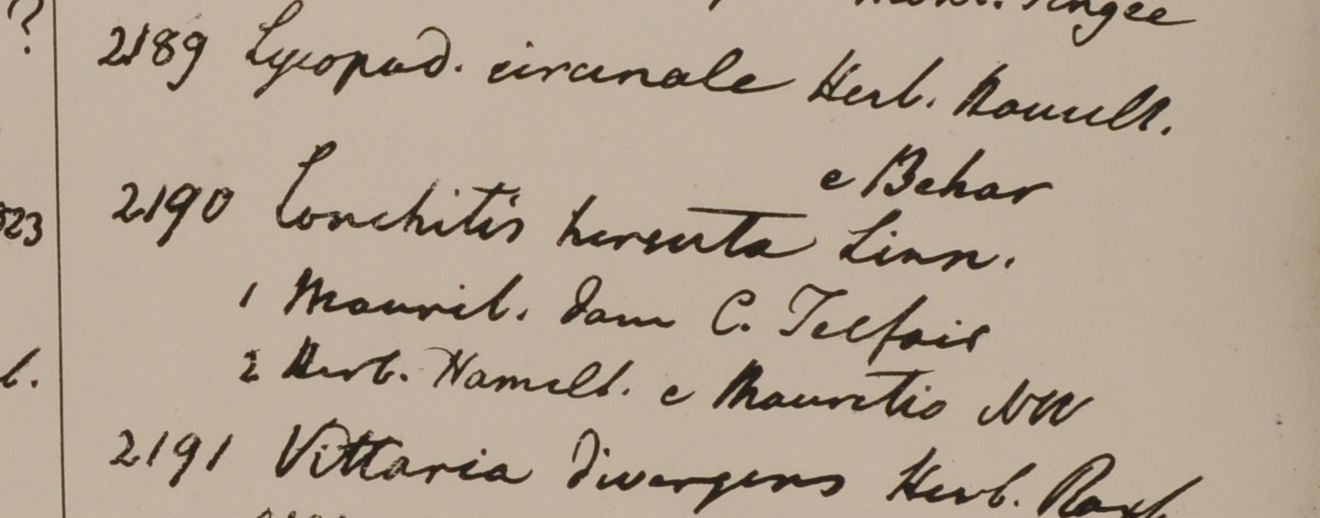 ?
2189 Lycopod. circinale Herb. Hamilt.
e Behar
2190 Lonchitis hirsuta Linn.
1 Maurit. dom C. Telfair
2 Herb. Hamilt. e Mauritio NW
2191 Vittaria divergens Herb. Roxb